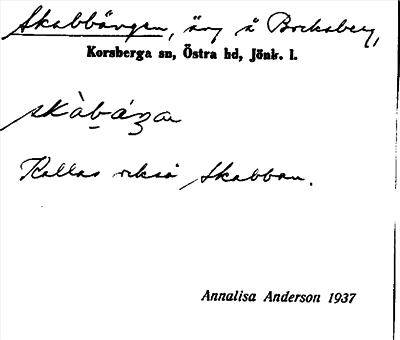 Skabbängen, äng å Bocksberg,
Korsberga sn, Östra hd, Jönk. l.
skàbáŋa
Kallas också Skabban.
Annalisa Anderson 1937